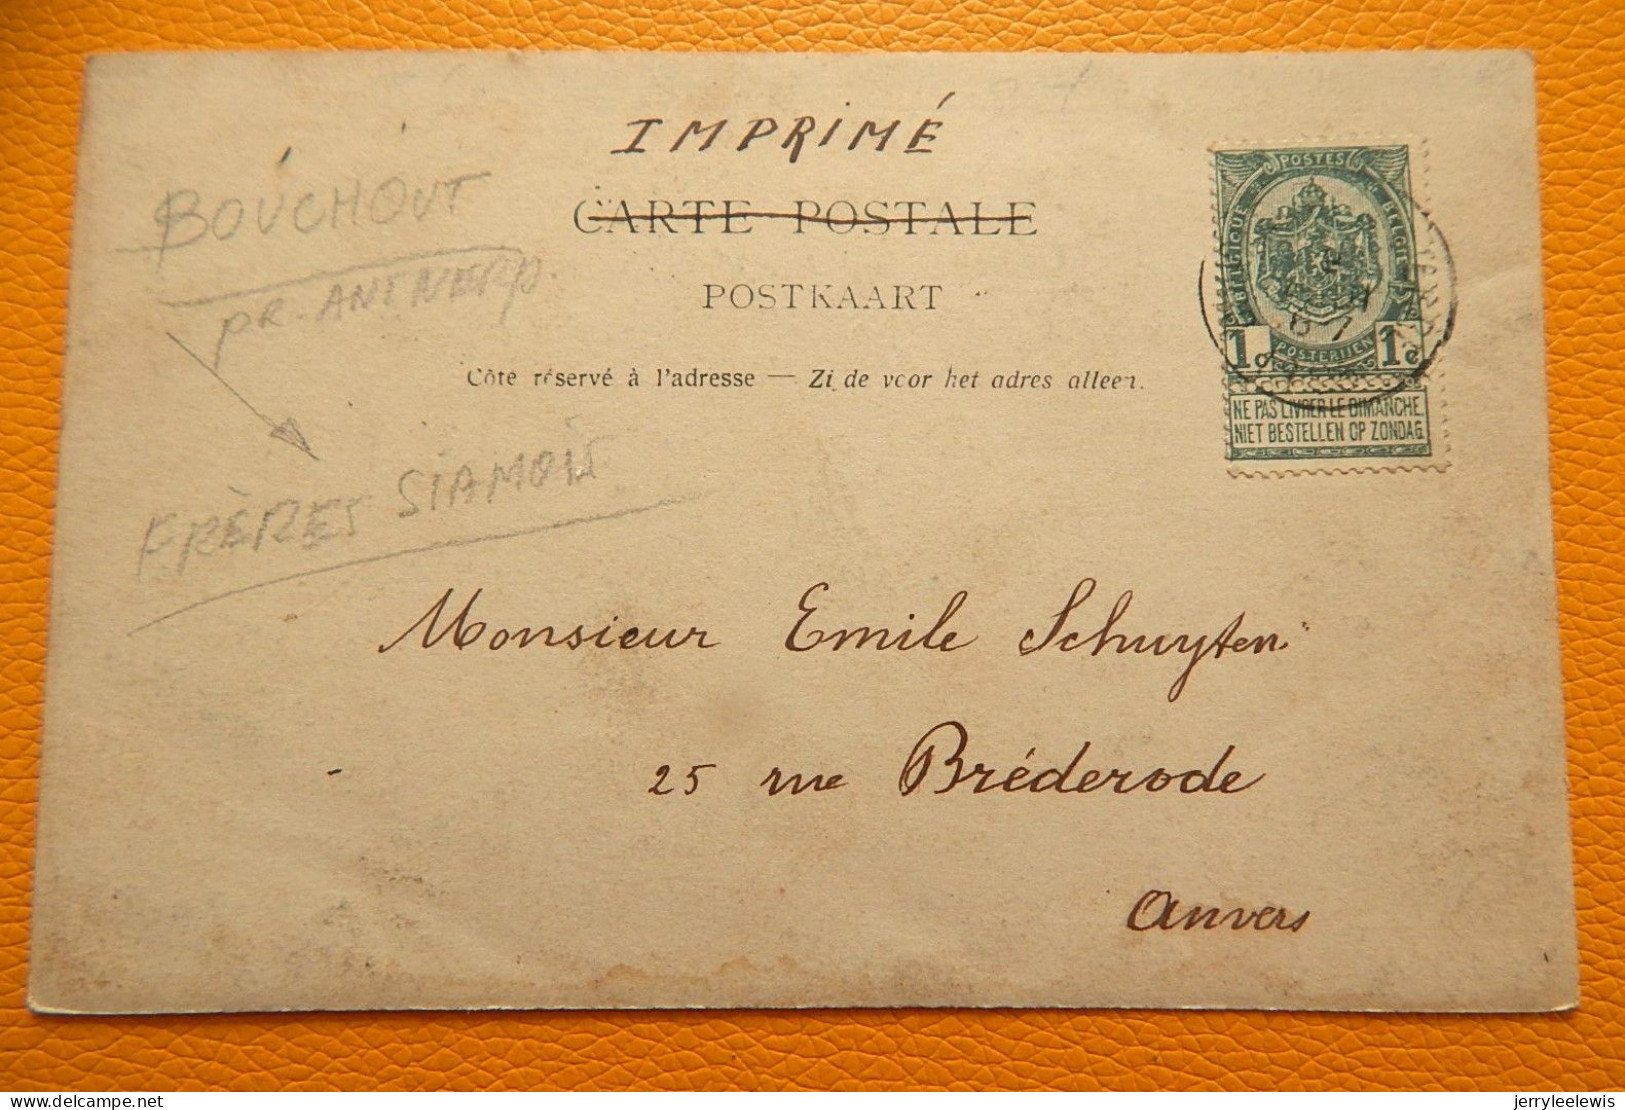 IMPRIMÉ
CARTE POSTALE
POSTKAART
Côte réservé à l'adresse — Zijde voor het adres alleen.
BOUCHOUT
PR. ANTWERP.
FRÈRES SIAMOIS
POSTES
BELGIQUE
BELGIE
POSTERIJEN
1c 1c
NE PAS LIVRER LE DIMANCHE.
NIET BESTELLEN OP ZONDAG.
Monsieur Emile Schuyten
25 rue Bréderode
Anvers
delcampe.net
jerryleelewis